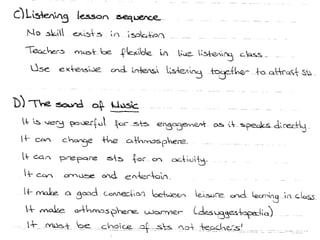 C) Listening lesson sequence
No skill exists in isolation
Teachers must be flexible in live listening class.
Use extensive and intensi listening together to attrast ss.
D) The sound of Music
It is very powerful for sts engagement as it speaks directly.
It can change the athmosphere.
It can prepare sts for an activity.
It can amuse and entertain.
It make a good connection between leisure and learning in class.
It make athmosphere warmer (desuggestopedia)
It must be choice of sts not teachers!